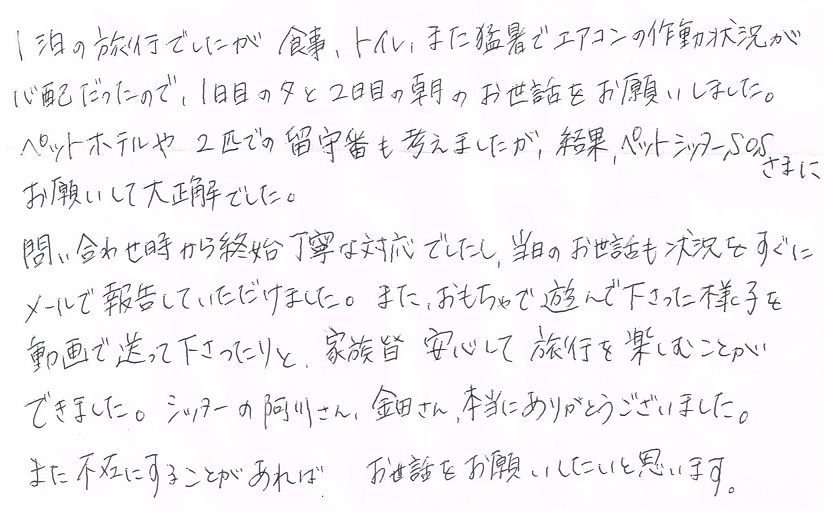 1泊の旅行でしたが 食事、トイレ、また猛暑でエアコンの作動状況が
心配だったので、1日目の夕と2日目の朝のお世話をお願いしました。
ペットホテルや 2匹での留守番も考えましたが、結果、ペットシッターSOSさまに
お願いして大正解でした。
問い合わせ時から終始丁寧な対応でしたし、当日のお世話も状況をすぐに
メールで報告していただけました。また、おもちゃで遊んで下さった様子を
動画で送って下さったりと、家族皆 安心して 旅行を楽しむことが
できました。シッターの阿川さん、金田さん、本当にありがとうございました。
また不在にすることがあれば お世話をお願いしたいと思います。